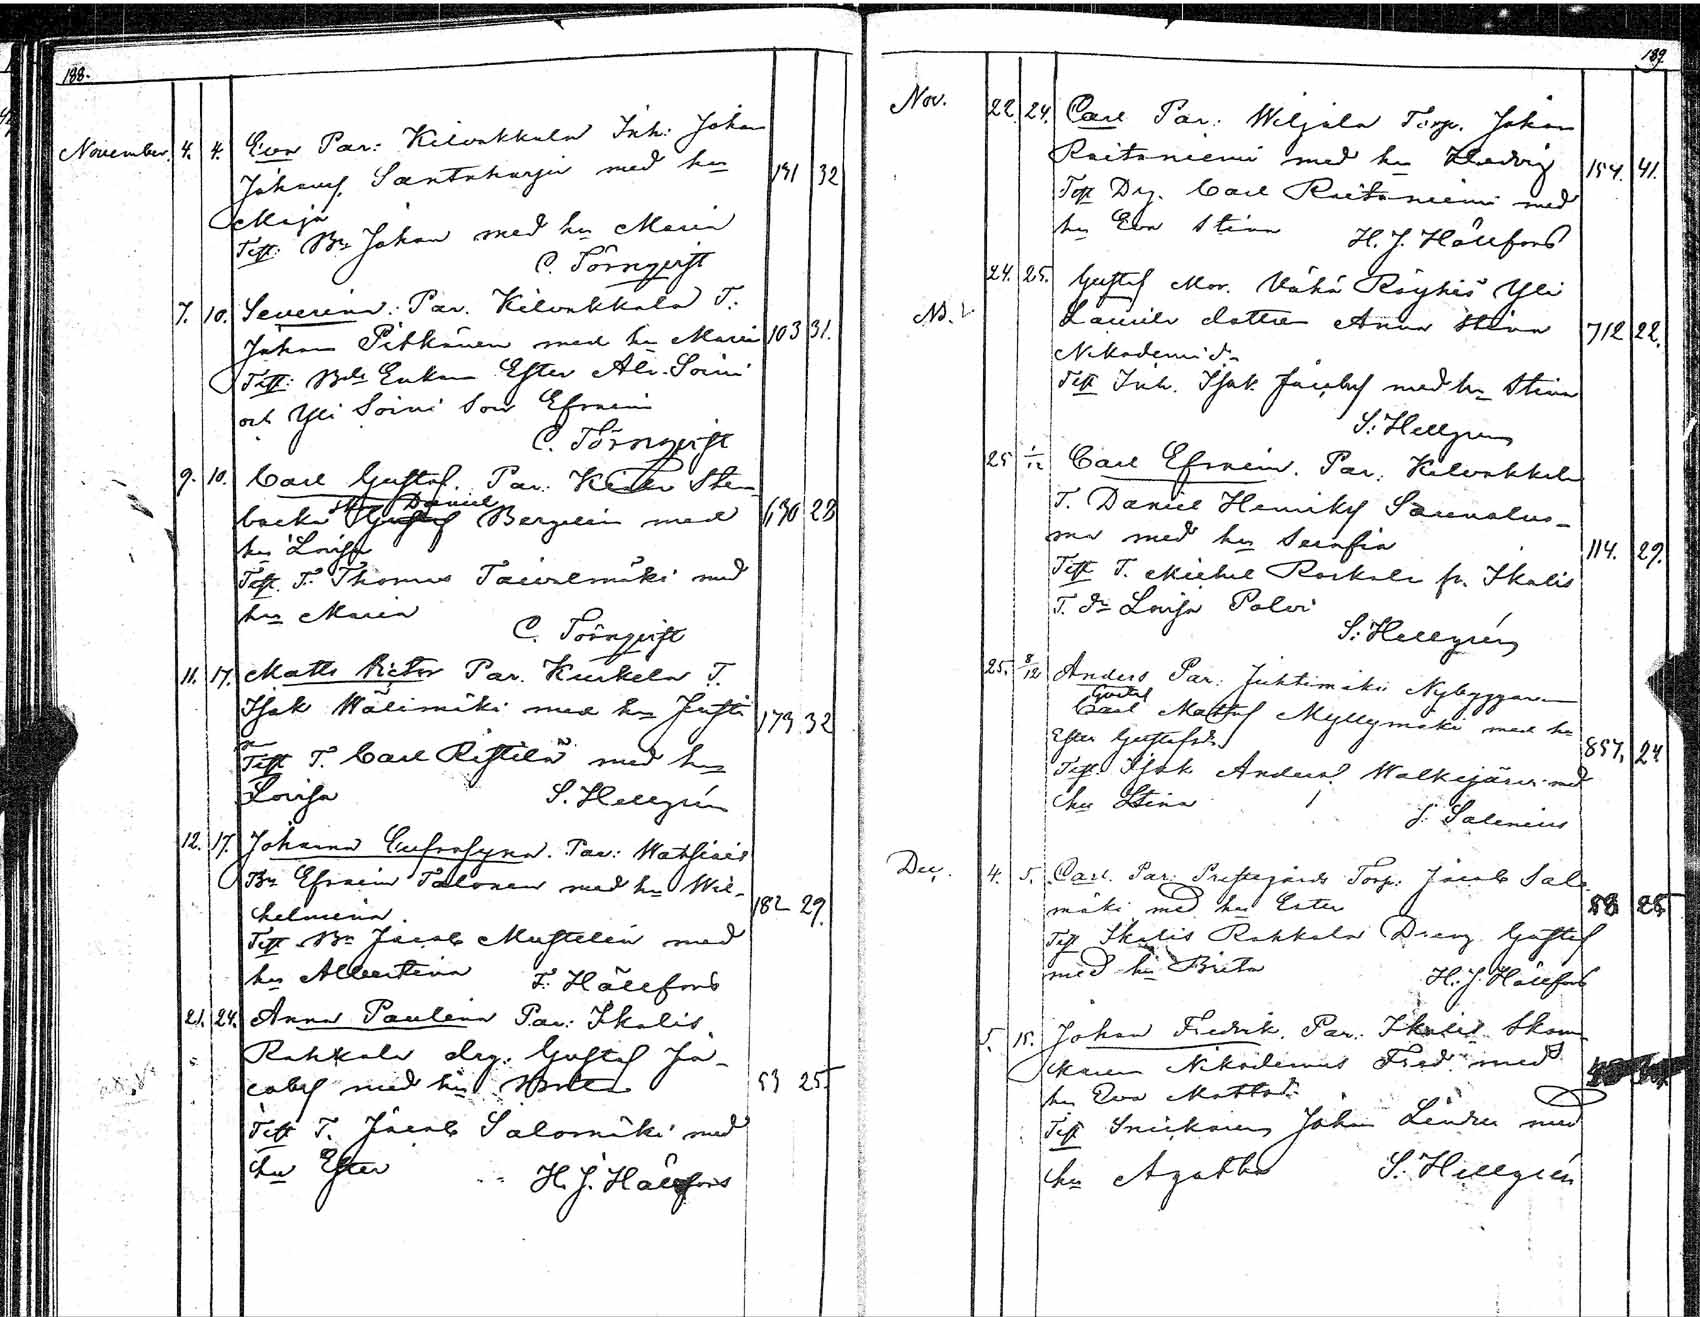 188.
November. 4. 4. Eva Par: Kilvakkala Inh: Johan
Johansf. Santaharju med hu 191 32
Maja
Test: Br Johan med hu Maria
C. Törnqvist
7. 10. Severin. Par. Kilvakkala T.
Johan Pitkänen med hu Maria 103 31.
Test: Enkan Ester Ala-Soini
och Yli Soini Son Efraim
C. Törnqvist
9. 10. Carl Gustaf. Par:
backa Daniel Bergelin med 28
hu Lovisa
Test. T. Thomas med
hu Maria
C. Törnqvist
11. 17. Matts Victor Par. Kurkela T.
Isak Wälimäki med hu Justi 179 32
na
Test T. Carl Ristilä med hu
Lovisa S. Hellgrén
12. 17. Johanna Eufrosyna. Par:
Br Efraim Talonen med hu Wil-
helmina. 182 29.
Test Br Jacob Mustelin med
hu Albertina F. Hällfors
21. 24. Anna Paulina Par: Ikalis
Rahkala drg. Gustaf Ja-
cobsf med hu 53 25
Test T. Jacob Salomäki med
hu Ester H. J. Hällfors
189
Nov. 22. 24. Carl Par: Wiljala Torp. Johan
Raitaniemi med hu Hedvig 154. 41.
Test Drg. Carl Raitaniemi med
hu Eva Stina H. J. Hällfors
24. 25. Gustaf Mor. Vähä Röyhiö Yli
Laurila dotter Anna Stina 712 22.
Nikodemi dr
Test Inh. Isak Jacobsf med hu Stina
S. Hellgren
25 1/12 Carl Efraim. Par. Kilvakkala
T. Daniel Henriksf
ma med hu Serafia 114. 29.
Test T. Michel fr. Ikalis
T. dr Lovisa Palvi
S. Hellgrén
25. 8/12 Anders Par: Juhtimäki Nybyggaren
Gustaf
Carl Mattsf Myllymäki med hu
Ester Gustafsdr 857. 24
Test. Isak Andersf Walkejärvi med
hu Stina
J. Salenius
Dec. 4. 5. Carl. Par: Prestegårds Torp: Jacob Salo
mäki med hu Ester 58 28
Test Ikalis Rahkala Dreng Gustaf
med hu Brita H. J. Hällfors
5. 15. Johan Fredrik. Par. Ikalis Skom
makaren Nikodemus Fred. med
hu Eva Mattsdr
Test Snickaren Johan Linder med
hu Agatha S. Hellgrén